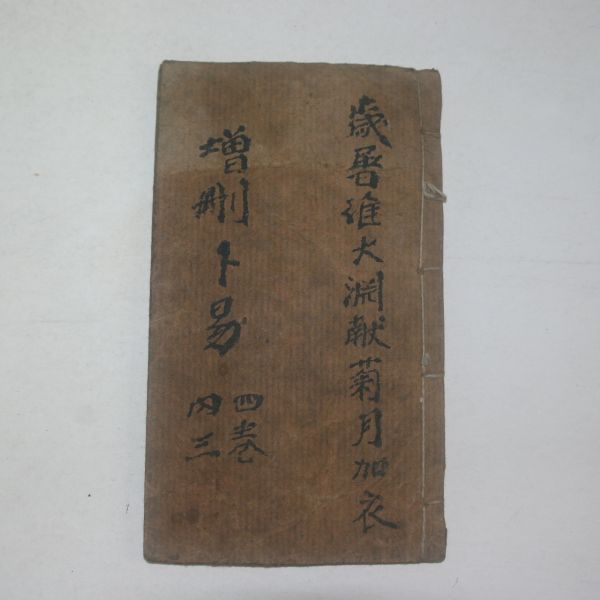 歲屠維大淵献菊月加衣
增刪卜易
四卷
内三